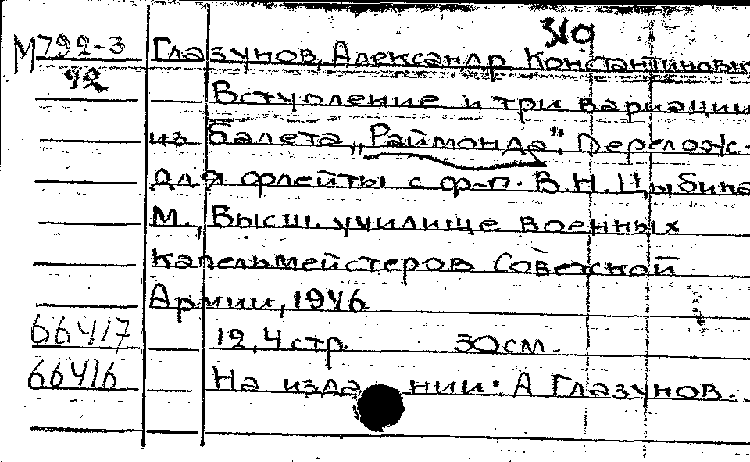 319
М792-3 Глазунов, Александр Константинович
92 Вступление и три вариации
из балета „Раймонда". Перелож.
для флейты с ф-п. В.Н. Цыбина
М., Высш. училище военных
капельмейстеров Советской
Армии, 1946
66417 12, 4 стр. 30 см.
66416 На издании: А Глазунов..